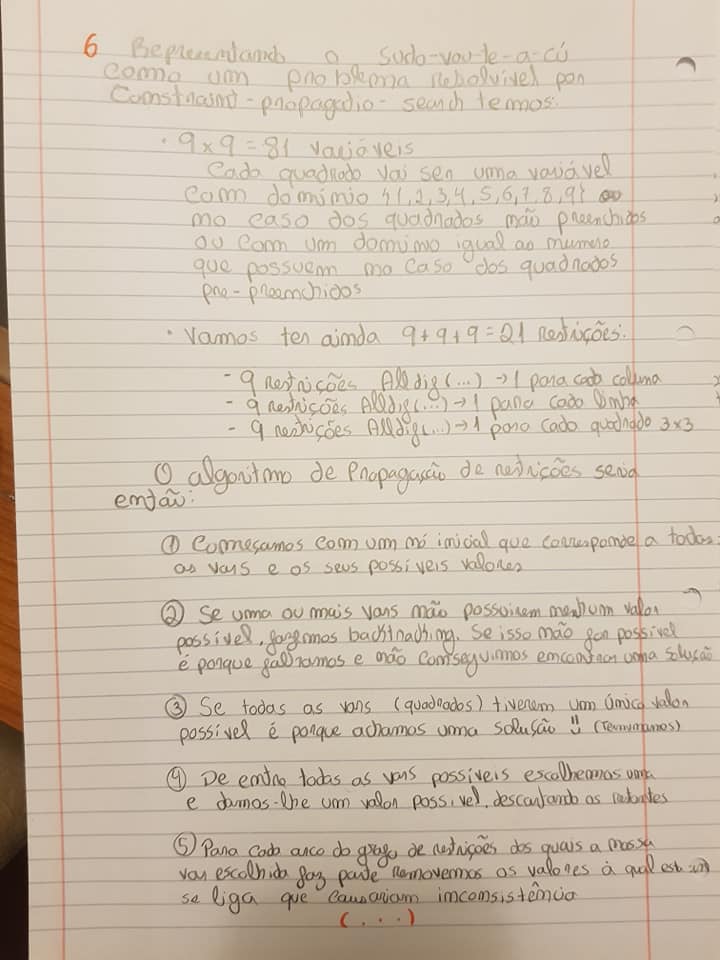 6 Representando o sudo-vou-te-a-cú
como um problema resolvível por
Constraint-propagatio-search temos:
· 9x9 = 81 variáveis
Cada quadrado vai ser uma variável
com domínio {1,2,3,4,5,6,7,8,9}
no caso dos quadrados não preenchidos
ou com um domínio igual ao numero
que possuem no caso dos quadrados
pre-preenchidos
· Vamos ter ainda 9+9+9=21 restrições:
- 9 restrições Alldif(...) → 1 para cada coluna
- 9 restrições Alldif(...) → 1 para cada linha
- 9 restrições Alldif(...) → 1 para cada quadrado 3x3
O algoritmo de Propagação de restrições seria
então:
① Começamos com um nó inicial que corresponde a todas
as vars e os seus possíveis valores
② Se uma ou mais vars não possuirem nenhum valor
possível, fazemos backtracking. Se isso não for possível
é porque falhamos e não conseguimos encontrar uma solução
③ Se todas as vars (quadrados) tiverem um único valor
possível é porque achamos uma solução !! (Terminamos)
④ De entre todas as vars possíveis escolhemos uma
e damos-lhe um valor possivel, descartando os restantes
⑤ Para cada arco do grafo de restrições dos quais a nossa
var escolhida faz parte removemos os valores à qual esta
se liga que causariam inconsistência
(...)